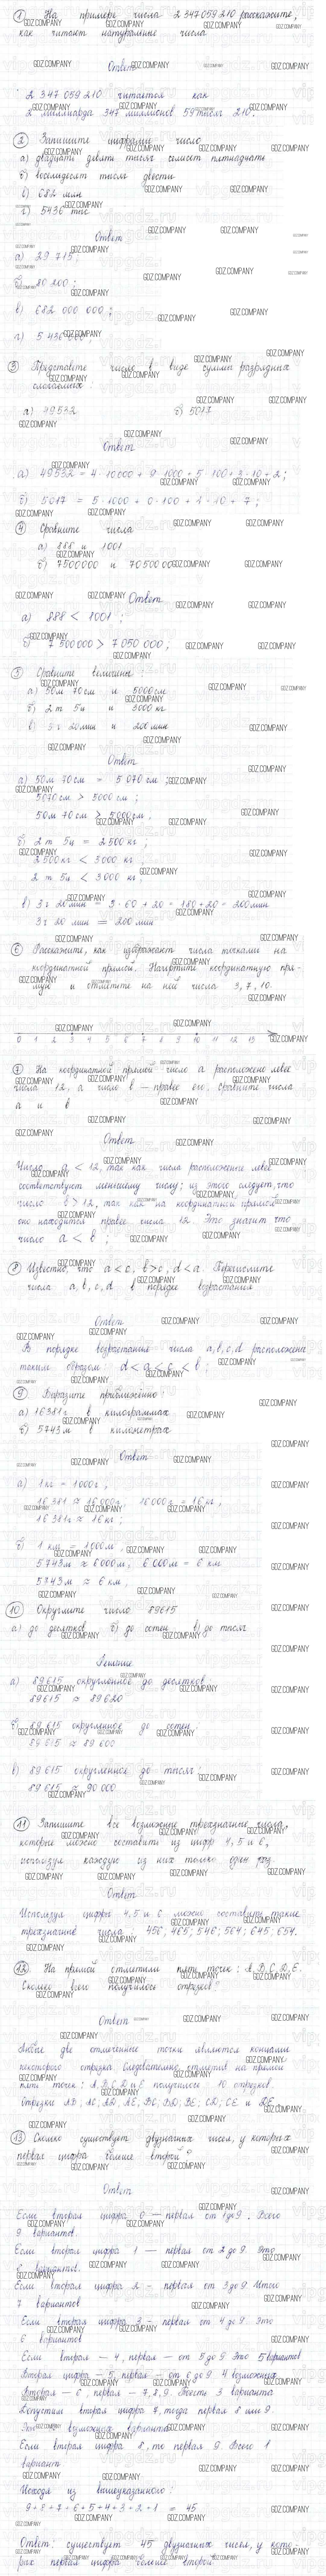 ① На примере числа 2 347 059 210 расскажите,
как читают натуральные числа
Ответ
2 347 059 210 читается как
2 миллиарда 347 миллионов 59 тысяч 210.
② Запишите цифрами число
а) двадцать девять тысяч семьсот пятнадцать
б) восемьдесят тысяч двести
в) 682 млн
г) 5436 тыс
Ответ
а) 29 715;
б) 80 200;
в) 682 000 000;
г) 5 436 000;
③ Представьте число в виде суммы разрядных
слагаемых:
а) 49532 б) 5017
Ответ
а) 49532 = 4·10000 + 9·1000 + 5·100 + 3·10 + 2;
б) 5017 = 5·1000 + 0·100 + 1·10 + 7;
④ Сравните числа
а) 888 и 1001
б) 7500000 и 7050000
Ответ
а) 888 < 1001;
б) 7 500 000 > 7 050 000;
⑤ Сравните величины:
а) 50м 70см и 5000см
б) 2т 5ц и 3000кг
в) 3ч 20мин и 200мин
Ответ
а) 50м 70см = 5 070 см;
5070см > 5000 см;
50м 70см > 5000см;
б) 2т 5ц = 2500 кг;
2 500 кг < 3 000 кг;
2т 5ц < 3 000 кг;
в) 3ч 20мин = 3·60 + 20 = 180 + 20 = 200мин
3ч 20 мин = 200 мин
⑥ Расскажите, как изображают числа точками на
координатной прямой. Начертите координатную пря-
мую и отметьте на ней числа 3, 7, 10.
0 1 2 3 4 5 6 7 8 9 10 11 12 13
⑦ На координатной прямой число а расположено левее
числа 12, а число в – правее его. Сравните числа
а и в
Ответ
Число а < 12, так как числа расположенные левее
соответствуют меньшему числу; из этого следует, что
число в > 12, так как на координатной прямой
оно находится правее числа 12. Это значит что
число а < в;
⑧ Известно, что a < c, b > c, d < a. Перечислите
числа a, b, c, d в порядке возрастания
Ответ
В порядке возрастания числа a, b, c, d расположены
таким образом d < a < c < b;
⑨ Выразите приближенно:
а) 16381г в килограммах
б) 5743м в километрах
Ответ
а) 1кг = 1000г;
16 381 ≈ 16 000г; 16 000г = 16 кг;
16 381г ≈ 16 кг;
б) 1 км = 1000м,
5743м ≈ 6000м; 6 000м = 6 км
5743м ≈ 6 км;
⑩ Округлите число 89615
а) до десятков б) до сотен в) до тысяч
Решение
а) 89615 округленное до десятков
89615 ≈ 89620
б) 89 615 округленное до сотен:
89 615 ≈ 89 600
в) 89 615 округленное до тысяч:
89 615 ≈ 90 000
⑪ Запишите все возможные трехзначные числа,
которые можно составить из цифр 4, 5 и 6,
используя каждую из них только один раз.
Ответ
Используя цифры 4, 5 и 6 можно составить такие
трехзначные числа: 456; 465; 546; 564; 645; 654.
⑫ На прямой отметили пять точек: A, B, C, D, E.
Сколько всего получилось отрезков?
Ответ
Любые две отмеченные точки являются концами
некоторого отрезка. Следовательно, отметив на прямой
пять точек: A, B, C, D и E получилось 10 отрезков.
Отрезки AB; AC; AD; AE; BC; BD; BE; CD; CE и DE.
⑬ Сколько существует двузначных чисел, у которых
первая цифра больше второй?
Ответ
Если вторая цифра 0 – первая от 1 до 9. Всего
9 вариантов.
Если вторая цифра 1 – первая от 2 до 9. Это
8 вариантов.
Если вторая цифра 2 – первая от 3 до 9. Итого
7 вариантов
Если вторая цифра 3 – первая от 4 до 9. Это
6 вариантов
Если вторая – 4, первая – от 5 до 9 Это 5 вариантов
Вторая цифра – 5, первая – от 6 до 9 4 возможных
Вторая – 6, первая – 7, 8, 9. Есть 3 варианта
Допустим вторая цифра 7, тогда первая 8 или 9
Это возможных варианта
Если вторая цифра 8, то первая 9. Всего 1
вариант
Исходя из вышеуказанного:
9 + 8 + 7 + 6 + 5 + 4 + 3 + 2 + 1 = 45
Ответ: существует 45 двузначных чисел, у кото-
рых первая цифра больше второй